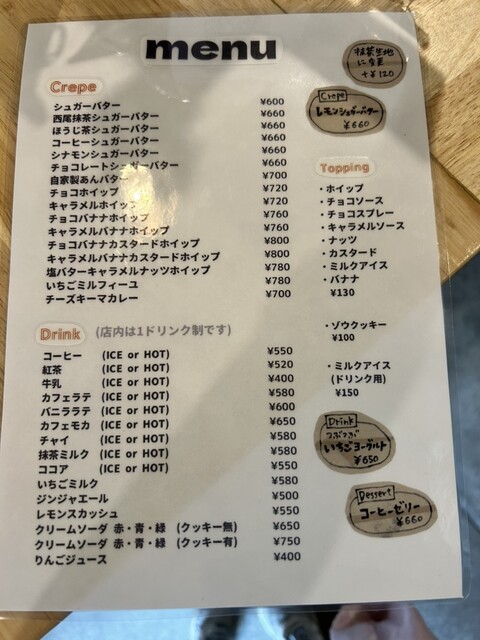 menu
Crepe
シュガーバター ¥600
西尾抹茶シュガーバター ¥660
ほうじ茶シュガーバター ¥660
コーヒーシュガーバター ¥660
シナモンシュガーバター ¥660
チョコレートシュガーバター ¥660
自家製あんバター ¥700
チョコホイップ ¥720
キャラメルホイップ ¥720
チョコバナナホイップ ¥760
キャラメルバナナホイップ ¥760
チョコバナナカスタードホイップ ¥800
キャラメルバナナカスタードホイップ ¥800
塩バターキャラメルナッツホイップ ¥780
いちごミルフィーユ ¥780
チーズキーマカレー ¥700
Drink (店内は1ドリンク制です)
コーヒー (ICE or HOT) ¥550
紅茶 (ICE or HOT) ¥520
牛乳 (ICE or HOT) ¥400
カフェラテ (ICE or HOT) ¥580
バニララテ (ICE or HOT) ¥600
カフェモカ (ICE or HOT) ¥650
チャイ (ICE or HOT) ¥580
抹茶ミルク (ICE or HOT) ¥580
ココア (ICE or HOT) ¥550
いちごミルク ¥580
ジンジャエール ¥500
レモンスカッシュ ¥550
クリームソーダ 赤・青・緑 (クッキー無) ¥650
クリームソーダ 赤・青・緑 (クッキー有) ¥750
りんごジュース ¥400
抹茶生地
に変更
+¥120
Crepe
レモンシュガーバター
¥660
Topping
・ホイップ
・チョコソース
・チョコスプレー
・キャラメルソース
・ナッツ
・カスタード
・ミルクアイス
・バナナ
¥130
・ゾウクッキー
¥100
・ミルクアイス
(ドリンク用)
¥150
Drink
つぶつぶ
いちごヨーグルト
¥650
Dessert
コーヒーゼリー
¥660